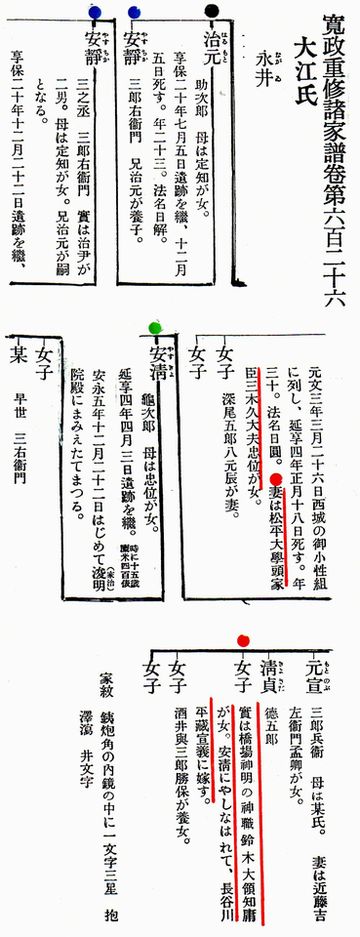 寛政重修諸家譜卷第六百二十六
大江氏
永井
ながゐ
治元
はるもと
助次郎 母は定知が女。
享保二十年七月五日遺跡を繼、十二月
五日死す。年二十三。法名日解。
安靜
やすちか
三郎右衞門 兄治元が養子。
安靜
やすちか
三之丞 三郎右衞門 實は治尹が
二男。母は定知が女。兄治元が嗣
となる。
享保二十年十二月二十二日遺跡を繼、
元文三年三月二十六日西城の御小性組
に列し、延享四年正月十八日死す。年
三十。法名日圓。妻は松平大學頭家
臣三木久大夫忠位が女。
女子
深尾五郎八元辰が妻。
女子
安淸
やすきよ
龜次郎 母は忠位が女。
延享四年四月三日遺跡を繼。時に十五歲
廩米四百俵
安永五年十二月二十二日はじめて浚明
(家治)
院殿にまみえたてまつる。
女子
某
早世 三右衞門
元宣
もとのぶ
三郎兵衞 母は某氏。 妻は近藤吉
左衞門孟卿が女。
淸貞
きよさだ
德五郎
女子
實は橋場神明の神職鈴木大領知庸
が女。安淸にやしなはれて、長谷川
平藏宣義に嫁す。
女子
酒井與三郎勝保が養女。
女子
家紋 銕炮角の內鏡の中に一文字三星 抱
澤瀉 井文字